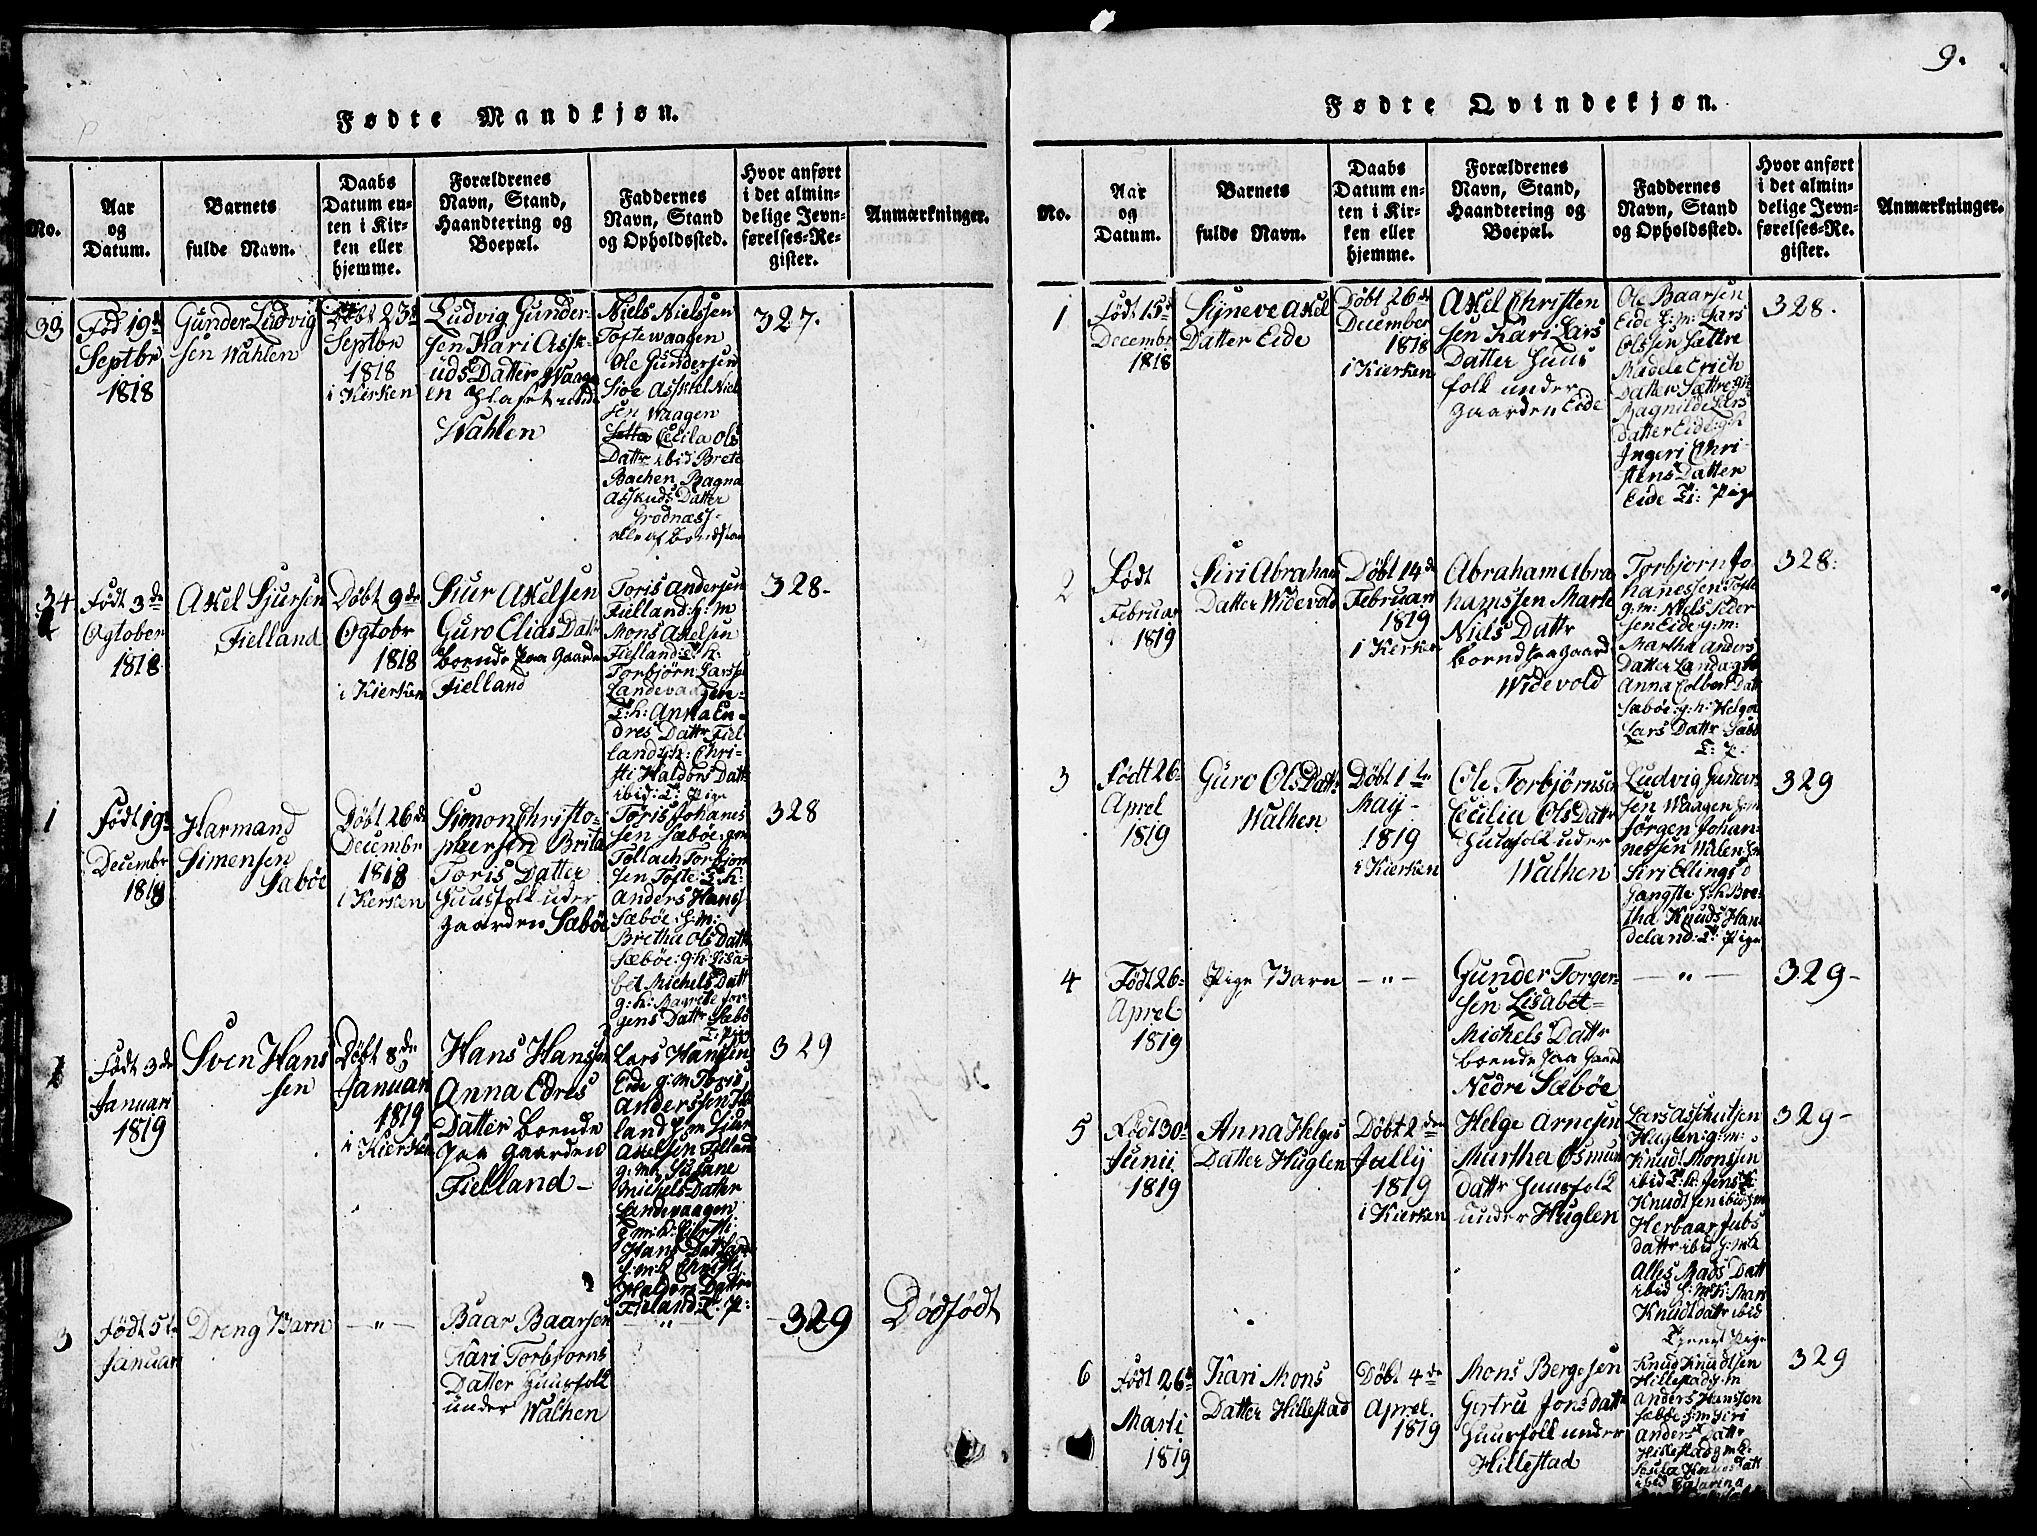 9.
Fødte Mandkjøn.
No.
Aar
og
Datum.
Barnets
fulde Navn.
Daabs
Datum en-
ten i Kir-
ken eller
hjemme.
Forældrenes
Navn, Stand,
Haandtering og
Boepæl.
Faddernes
Navn, Stand
og Opholdssted.
Hvor anført
i det almin-
delige Jevn-
førelses-Re-
gister.
Anmærkninger.
33
Fød 19de
Septbr
1818
Gunder Ludvig
sen Wahlen
Døbt 23de
Septbr
1818
i Kirken
Ludvig Gunder-
sen Kari Assk-
uds Datter Waag
en Plaset und
Wahlen
Niels Nielssen
Toftewaagen
Ole Gundersen
Siøe Asskiel Niel
sen Waagen
Cecila Ols
Dattr ibid Brete
Bachen Ragna
Asskuds Datter
Grodnæss-
alle af bondstan
327.
34
Født 3de
Ogtober
1818
Axel Sjursen
Fielland
Døbt 9de
Ogtobr
1818
i Kierken
Siur Axelsen
Guro Elias Datr
boende paa Gaarde
Fielland
Toris Andersen
Fielland: g: m
Mons Axelsen
Fielland: T: K:
Torbjørn Larss
Landevaagen-
T: h: Anna En-
dres Dattr Fiel
land g:h: Chri-
sti Haldors Dattr
ibid: T: Pige
328-
1
Født 19de
Decembr
1818
Harmand
Simensen
Sabøe
Døbt 26de
Decembr
1818
i Kierken
Simon Christo-
phersen Brita
Toris Datter
Huusfolk under
gaarden Sæbøe
Toris Johanes
sen Sæbøe: gm
Tollach Torbjørn
sen Tofte: T: K:
Anders Hans
Sæbøe: H: M:
Bretha Ols Dattr
Sæbøe: g:h: Lisa-
bet Michels Datt
g: h: Marrite Jør
gens Dattr Sæbø
T: Pige
328
Født 3de
Januari
1819
Sven Hans
sen
Døbt 8de
Januari
1819
i Kierken
Hans Hanssen
Anna Edres
Datter boende
paa gaarden
Fielland-
Lars Hanssen
Eide g: m Toris
Anderssen Fil
land g: m Siur
Axelsen Felland
g: mk Susane
Michels Datter
Landevaagen
Hans Dat
Haldors Dattr
Fieland: T: P:
329
3
Født 5te
Januar
Dreng Barn
-"-
Baar Baarsen
Kari Torbjorns
Datter Huusfolk
under Walhen
"
329
Dødfødt
Fødte Qvindekjøn.
No.
Aar
og
Datum.
Barnets
fulde Navn.
Daabs
Datum en-
ten i Kir-
ken eller
hjemme.
Forældrenes
Navn, Stand,
Haandtering og
Boepæl.
Faddernes
Navn, Stand
og Opholdssted.
Hvor anført
i det almin-
delige Jevn-
førelses-Re-
gister.
Anmærkninger.
1
Født 15de
Decembr
1818
Syneve Axel
Datter Eide
Døbt 26de
December
1818
i Kierken
Axel Christen
sen Kari Lars
Datter Huus
folk under
gaarden Eide
Ole Baarsen
Eide H: M: Lars
Olssen Sættre
Madele Erich
Datter Sættre
Ragnilde Lars
Datter Eide: g:h
Ingeri Chri-
stens Datter
Eide T: Pige
328.
2
Født
Februar
1819
Siri Abraham
Datter Widevold
Døbt 14de
Februari
1819
i Kierken
Abraham Abra
hamssen Marte
Niels Dattr
boend paa gaard
Widevold
Torbjørn Jo
hanessen Tofte
g: m: Niels Peder
sen Eide: g: m:
Martha Anders
Datter Landa
Anna Colben Datt
Sæbøe: g: h: Helga
Lars Dattr Sæbø
T: P:
328:
3
Født 26
Aprel
1819
Guro Ols Dattr
Walhen
Døbt 1te
May-
1819
i Kierken
Ole Torbjørnsen
Cecilia Ols Datr
Huusfolk under
Walhen
Ludvig Gunder
sen Waagen
Jørgen Johan-
nessen Walen
Siri Ellings D
Gangtte Bre-
tha Knuds Han
deland: T: Pige
329
4
Født 26
Aprel
1819
Pige Barn
-"-
Gunder Torger-
sen Lisabet=
Michels Dattr
boende paa gaard
Nedre Sæbøe
-"-
329-
5
Født 30
Junii
1819
Anna Helges
Datter Huglen
Døbt 2den
Jully
1819
i Kierken
Helge Arnesen
Martha Osmun
dattr Huusfolk
under Huglen
Lars Asschulsen
Huglen: g: m:
Knud Monssen
ibid T: K: Jens
Knudtsen ibid
Herbaar Jubs
dattr ibid H: mk
Alles Mads Datt
ibid H: mk: Mari
Knudsdattr ibid
Tjenes Pige
329-
6
Født 26de
Marti
1819
Kari Mons
Datter Hillestad
Døbt 4de
Aprel.
1819
Mons Bergesen
Gertru Jonsdattr
Huusfolk under
Hillestad
Knud Knudtsen
Hillestad g: m
Anders Hanssen
Sæbøe H: m Siri
Anders Dattr
Hillestad g m k:
Knuds Datt
ibid Catarina
329